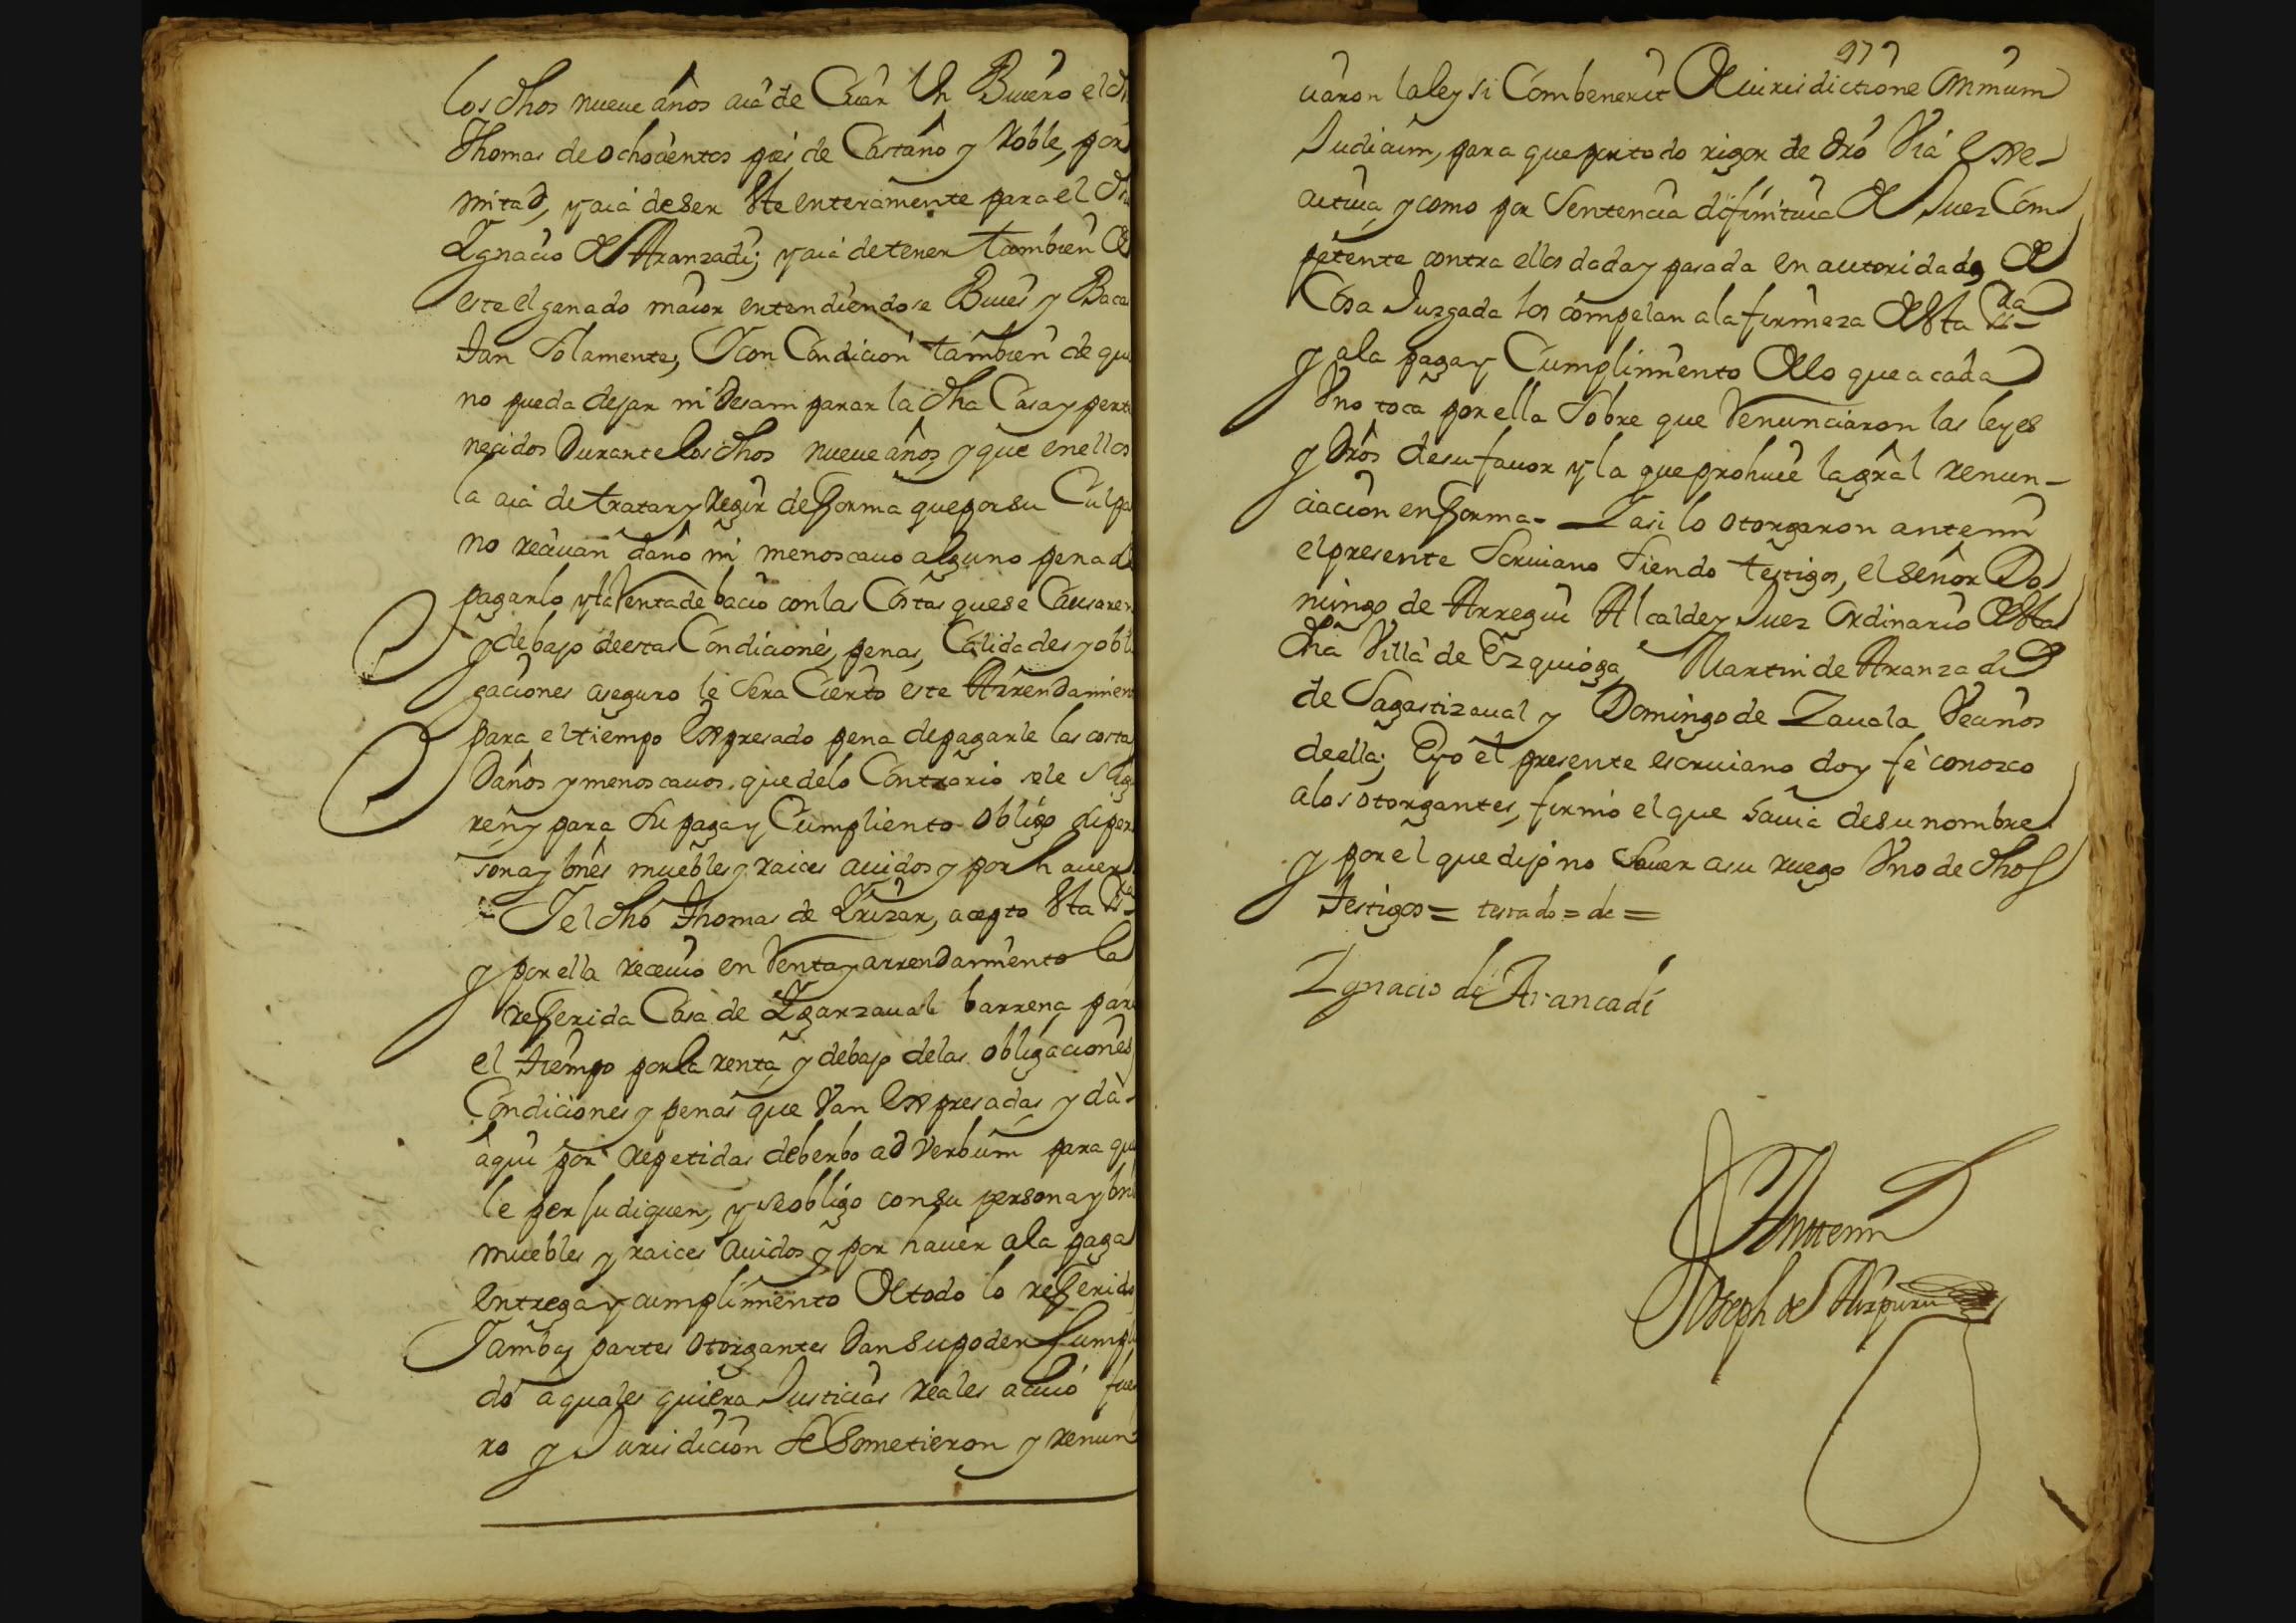 los dhos nueue años aia de Criar Un Biuero el dh
Thomas de ochocientos pies de Castaño y Roble, por
mitad, y aia de ser Ste enteramente para el dho
Ygnacio de Aranzadi; y aia de tener tambien de
este el ganado maior entendiendose Bues y Baca
Tan Solamente, Y con Condicion tambien de que
no pueda dejar ni Desamparar la dha Casa y perte
necidos Durante los dhos nueue años, y que en ellos
la aia de tratar y Regir de fforma que por su Culpa
no reciuan daño ni menoscauo alguno pena de
pagarlo y la Renta de bacio con las Costas que se Causaren
y debajo de estas Condiciones, penas, Calidades y obli
gaciones aseguro le Sera Cierto este Arrendamien
para el tiempo Expresado pena de pagarle las costas
Daños y menoscauos que de lo Contrario se le Sigu
ren y para su paga y Cumpliento obligo su per
sona y bnes muebles y raices auidos y por hauer
Y el dho Thomas de Yrizar, acepto Sta ssra
y por ella reciuio en Renta y arrendamiento la
refferida Casa de Ygarzaual barrena para
el tiempo por la renta, y debajo de las obligaciones
Condiciones y penas que Van Expresadas, y da
aqui por repetidas de berbo ad Verbum para que
le perjudiquen, y se obligo con su persona y bnes
muebles y raices auidos y por hauer a la paga
Entrega y cumplimiento de todo lo refferido
Y ambas partes otorgantes Dan su poder Cumpli
do a quales quiera Justicias reales a cuio fue
ro y Jurisdicion se Sometieron y renun
977
ciaron la ley si Combenerit de iurisdictione omnium
Judicum, para que por todo rigor de dro Via Exe-
cutiua, y como por Sentencia difinitiua de Juez Com
petente contra ellos dada y pasada en autoridad, de
Cosa Juzgada los compelan a la firmeza de Sta ssra
y a la paga y Cumplimiento de lo que a cada
Vno toca por ella Sobre que Renunciaron las leyes
y Dros de su fauor y la que prohiue la gral renun-
ciacion en fforma - Y asi lo otorgaron ante mi
el presente Scriuano siendo testigos, el señor Do
mingo de Arregui Alcalde y Juez Ordinario de Sta
dha Villa de Ezquioga, Martin de Aranzadi
de Sagastizaual y Domingo de Zauala Vecinos
de ella; E yo el presente escriuano doy fe conozco
a los otorgantes, firmo el que sauia de su nombre
y por el que dijo no Sauer a su ruego Vno de dhos
testigos = testado = de =
Ygnacio de Arancadi
Ante mi
Joseph de Aizpuru